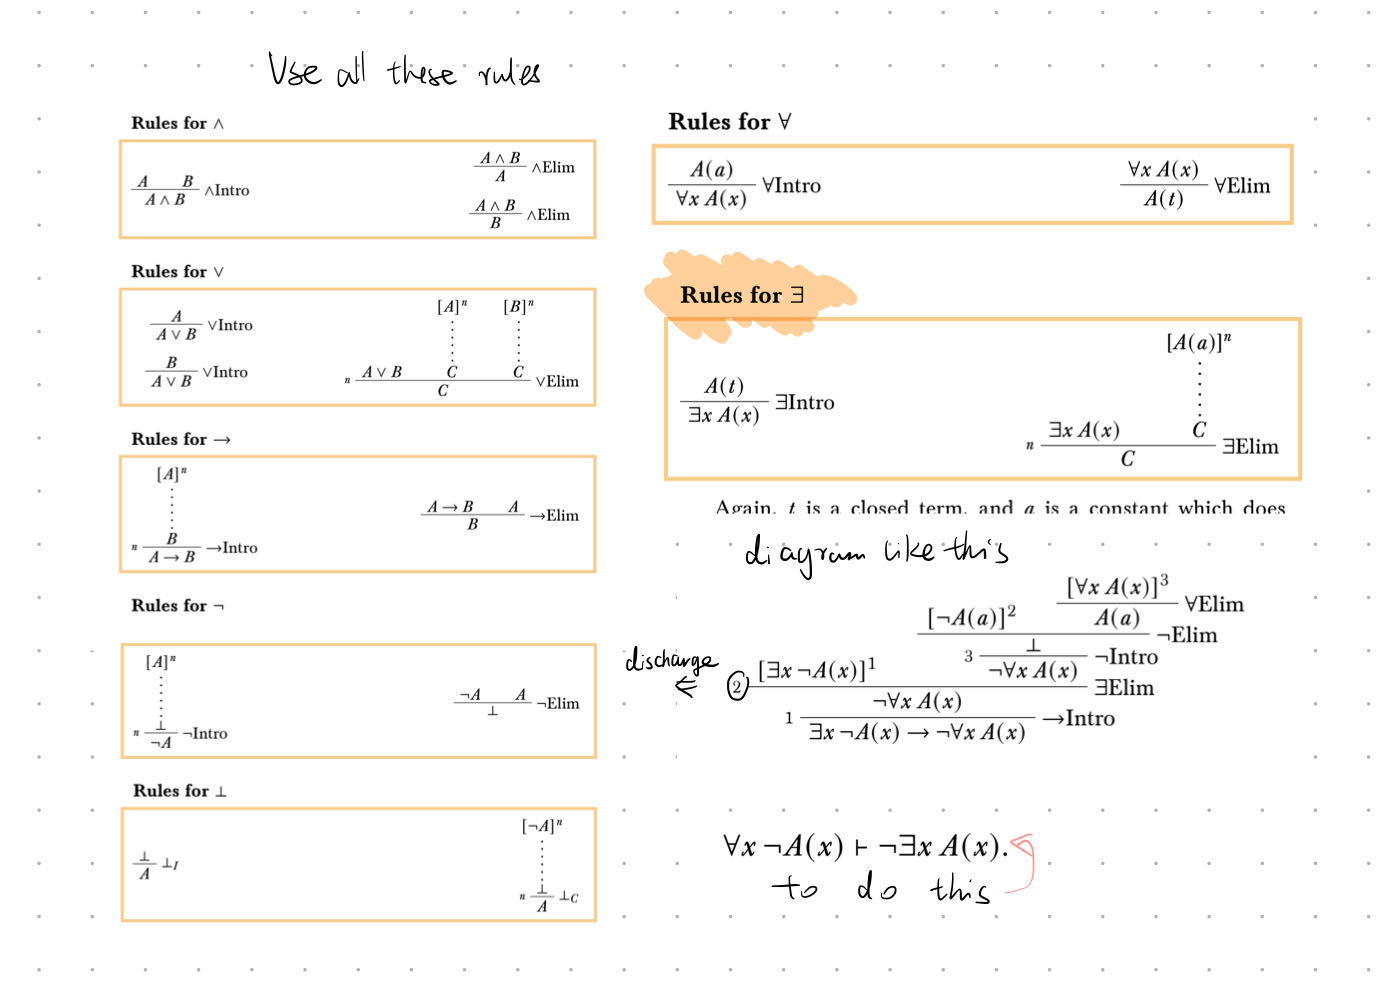 Use all these rules
Rules for ∧
A B
A ∧ B
∧Intro
A ∧ B
A
∧Elim
A ∧ B
B
∧Elim
Rules for ∨
A
A ∨ B
∨Intro
B
A ∨ B
∨Intro
[A]ⁿ [B]ⁿ
n A ∨ B C C
C
∨Elim
Rules for →
[A]ⁿ
B
n A → B
→Intro
A → B A
B
→Elim
Rules for ¬
[A]ⁿ
⊥
n ¬A
¬Intro
¬A A
⊥
¬Elim
Rules for ⊥
⊥
A
⊥I
[¬A]ⁿ
⊥
n A
⊥C
Rules for ∀
A(a)
∀x A(x)
∀Intro
∀x A(x)
A(t)
∀Elim
Rules for ∃
A(t)
∃x A(x)
∃Intro
[A(a)]ⁿ
n ∃x A(x) C
C
∃Elim
Again, t is a closed term, and a is a constant which does
diagram like this
[∀x A(x)]³
[¬A(a)]² A(a) ∀Elim
⊥ ¬Elim
discharge
[∃x ¬A(x)]¹ 3 ¬∀x A(x) ¬Intro
2 ¬∀x A(x) ∃Elim
1 ∃x ¬A(x) → ¬∀x A(x) →Intro
∀x ¬A(x) ⊢ ¬∃x A(x).
to do this